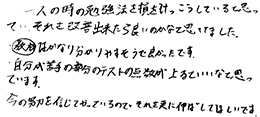 一人の時の勉強法を横と計っこうしていると思っ
ていそれを改善出来たら良いのかなと思いました。
・説明はかなり分かりやすそうで良かったです。
・自分が苦手の部分のテストの点数が上るといいなと思っ
ています。
今の努力を信じてやっているので、それを更に伸ばしてほしいです。